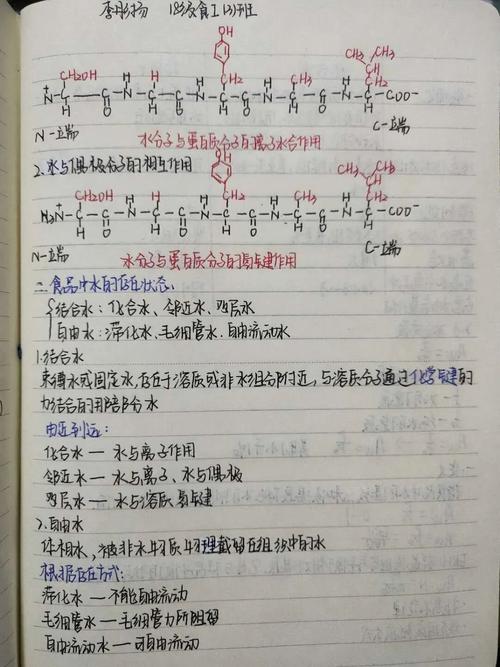 18级食工(3)班
OH
CH₂OH CH₂ CH₃ CH₃ CH₃ CH CH₂
N⁺ C C N C C N C C N C C N C C N C COO⁻
N-端 C-端
水分子与蛋白质分子的离子水合作用
2.水与偶极分子的相互作用
OH
CH₂OH CH₂ CH₃ CH₃ CH₂
H₃N⁺ C C N C C N C C N C C N C C N C COO⁻
N-端 C-端
水分子与蛋白质分子的氢键作用
二.食品中水的存在状态
结合水：化合水、邻近水、多层水
自由水：滞化水、毛细管水、自由流动水
1.结合水
束缚水或固定水,存在于溶质或非水组分附近，与溶质分子通过化学键的
力结合的那部分水
由近到远：
化合水—水与离子作用
邻近水—水与离子、水与偶极
多层水—水与溶质氢键
2.自由水
体相水，被非水物质物理截留在组织中的水
根据存在方式：
滞化水—不能自由流动
毛细管水—毛细管力所阻留
自由流动水—可自由流动